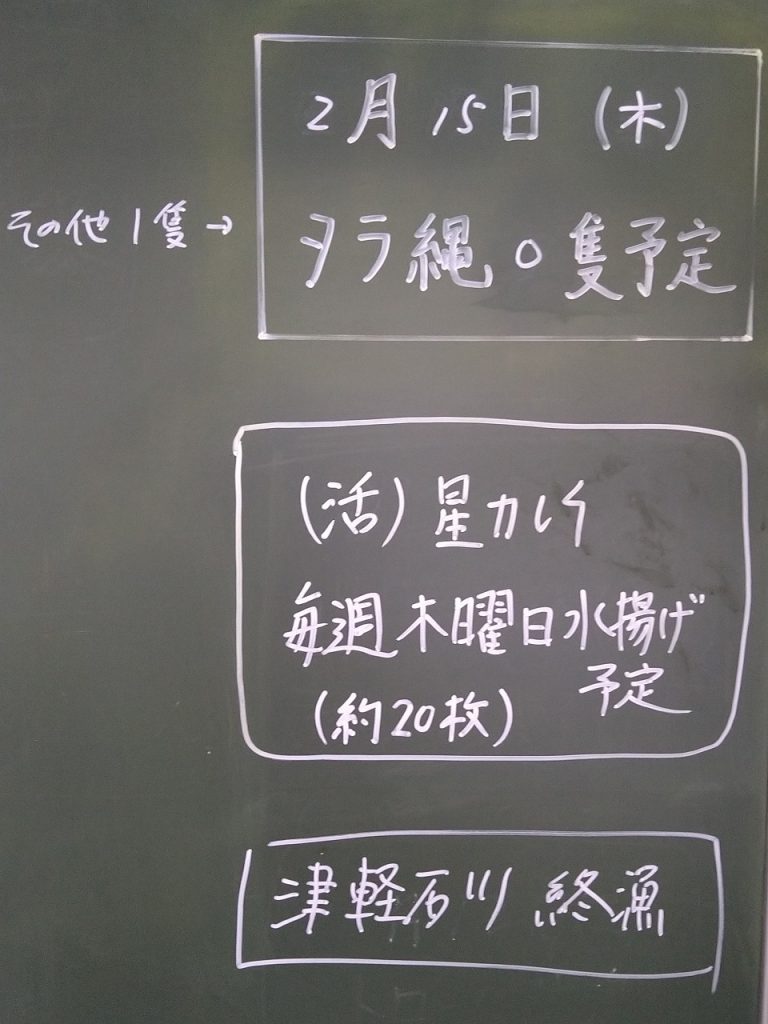 2月15日 (木)
その他1隻→
タラ縄0隻予定
(活)星カレイ
毎週木曜日水揚げ
予定
(約20枚)
津軽石川 終漁